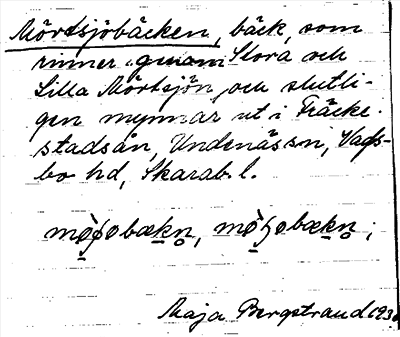 Mörtsjöbäcken, bäck, som
rinner genom Stora och
Lilla Mörtsjön, och slutli-
gen mynnar ut i Fräcke-
stadsån, Undenäs sn, Vads-
bo hd, Skarab. l.
Maja Bergstrand 193